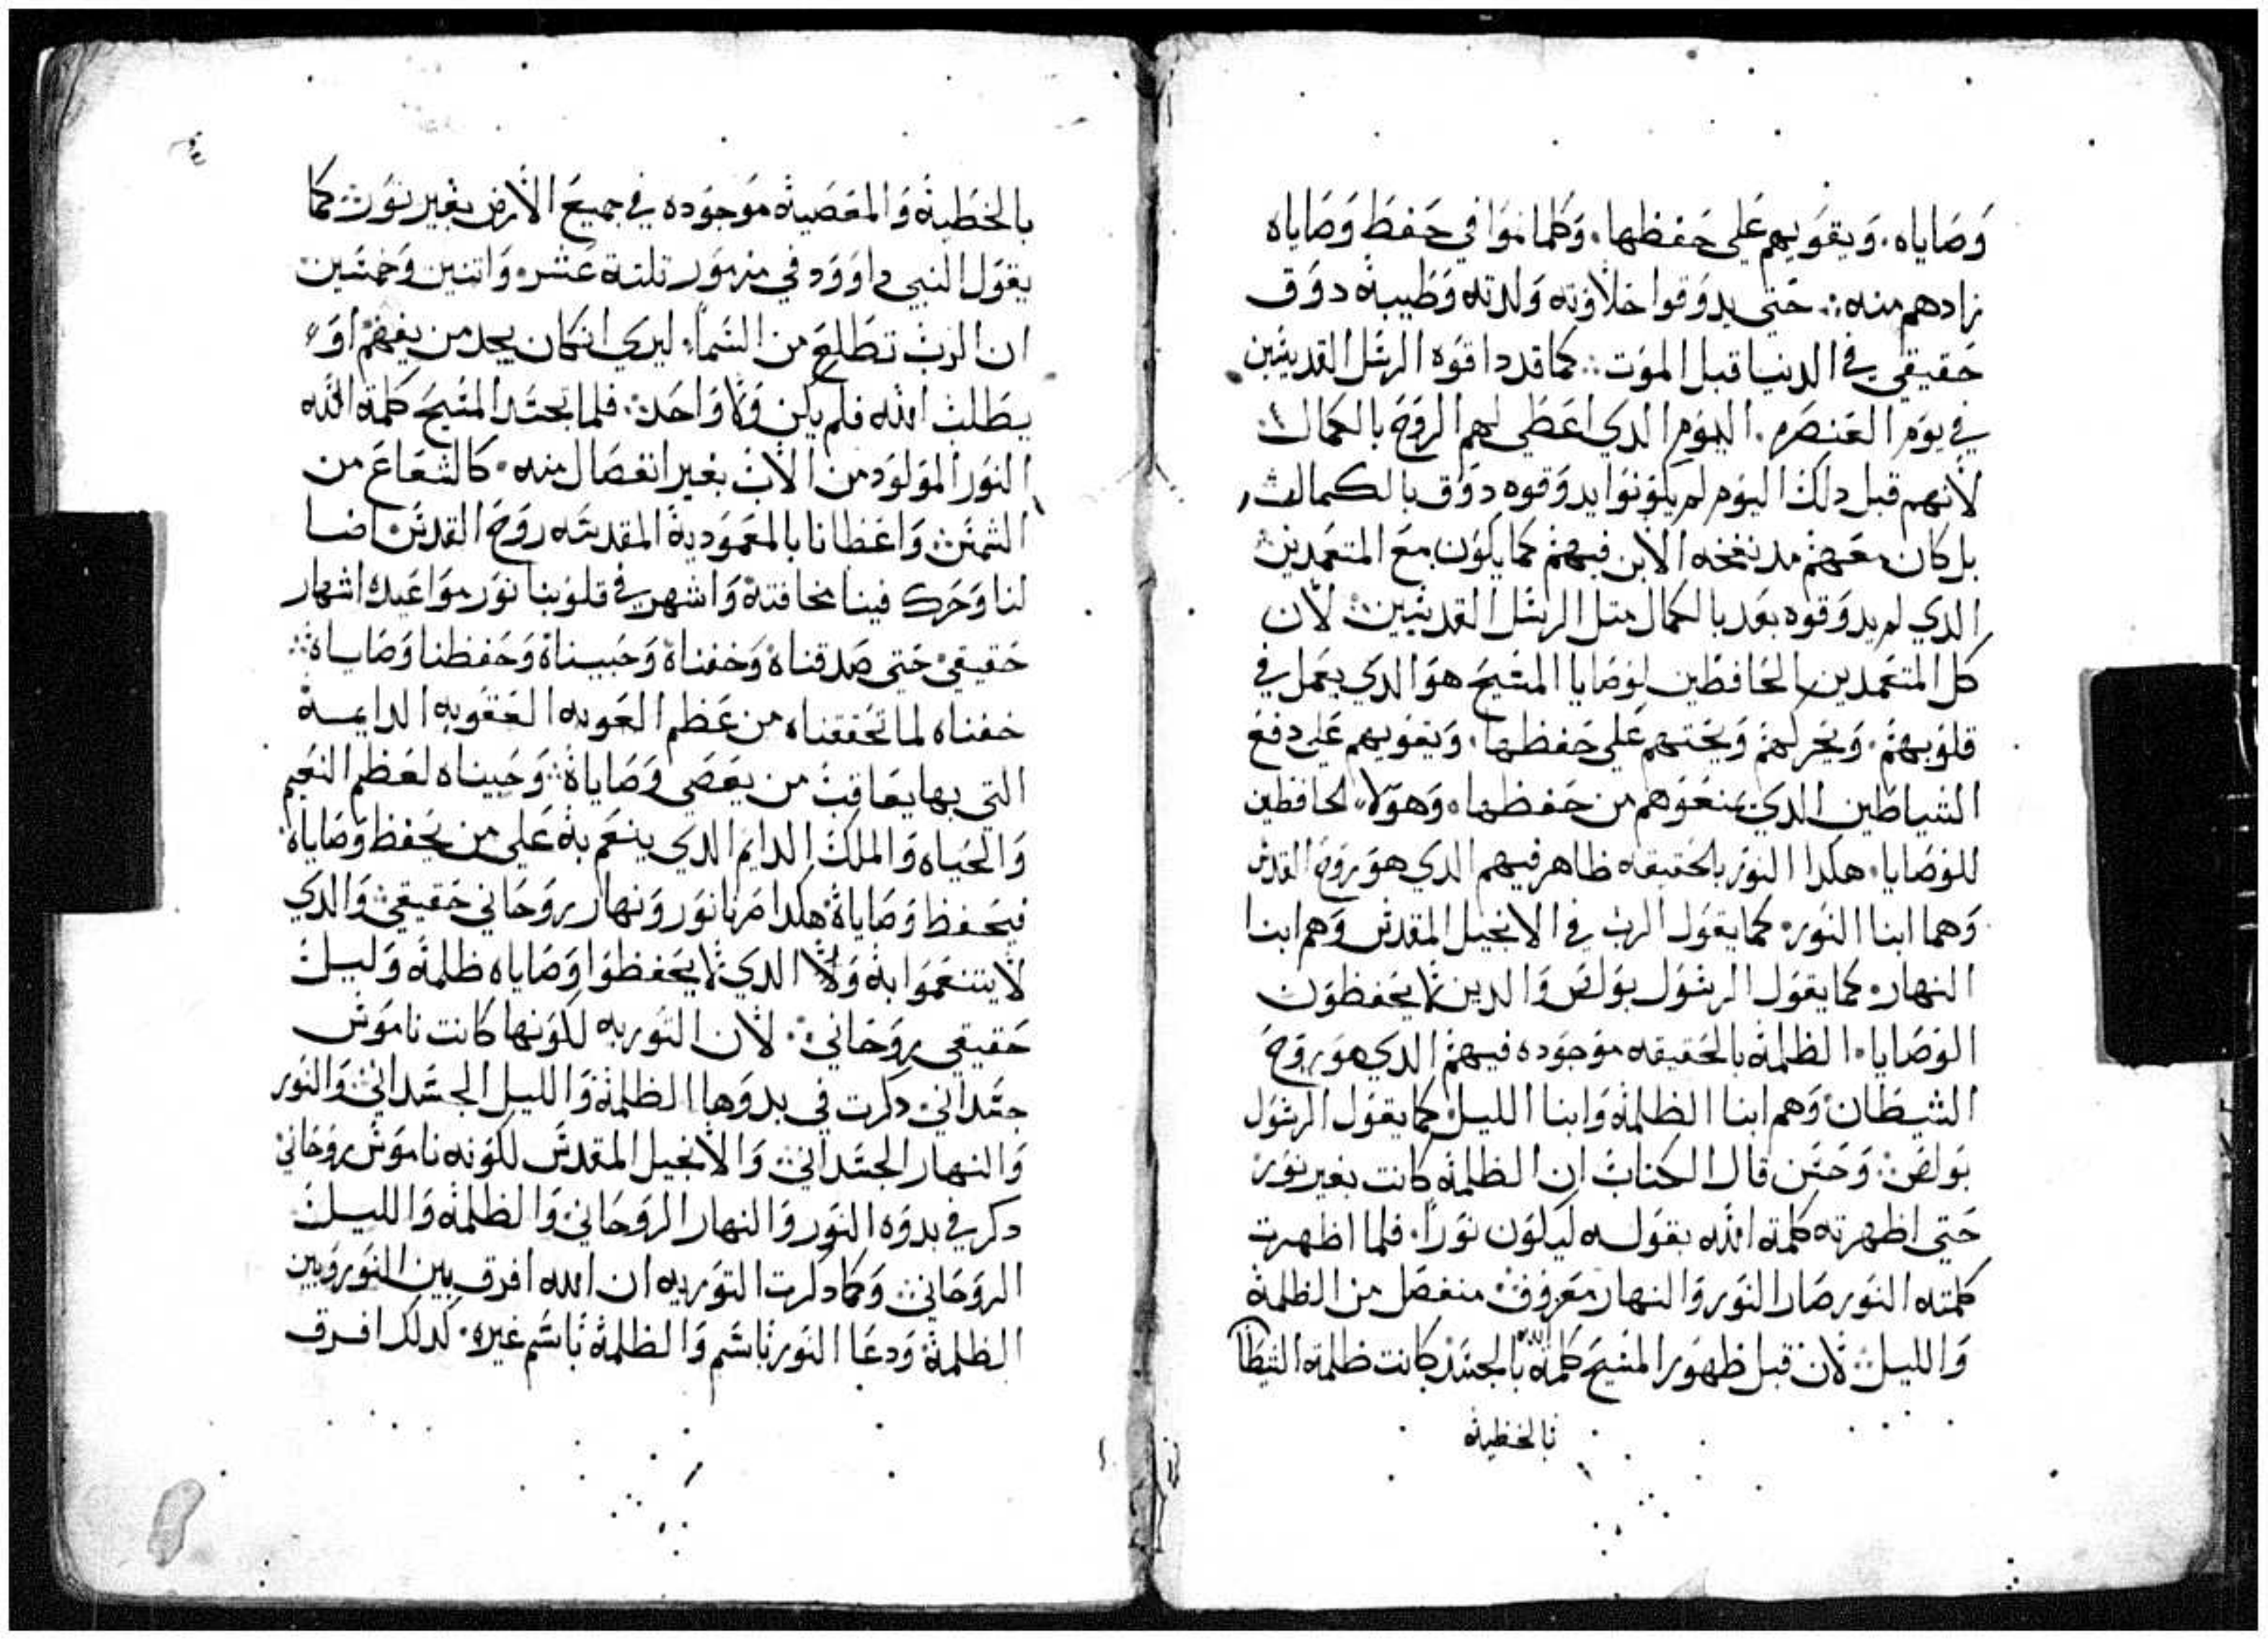 وصاياه. ويقويهم على حفظها. وكلما نموا في حفظ وصاياه
زادهم منه: حتى يدوقوا حلاوته ولدته وطيبه دوق
حقيقي في الدنيا قبل الموت: كما قد داقوه الرسل القديسين
في يوم العنصره. اليوم الدي اعطى لهم الروح بالكمال
لانهم قبل دلك اليوم لم يكونوا يدوقوه دوق بالكمال
بل كان معهم مد نفخه الابن فيهم كما يكون مع المتعمدين
الدي لم يدوقوه بعد بالكمال متل الرسل القديسين لان
كل المتعمدين الحافظين لوصايا المسيح هو الدي يعمل في
قلوبهم. ويحركهم ويحتهم على حفظها. ويقويهم على دفع
الشياطين الدي يمنعوهم من حفظها. وهولاء الحافظين
للوصايا. هكدا النور بالحقيقه ظاهر فيهم الدي هو روح القدس
وهما ابنا النور. كما يقول الرب في الانجيل المقدس وهم ابنا
النهار. كما يقول الرسول بولص والدين لا يحفظون
الوصايا. الظلمة بالحقيقه موجوده فيهم الدي هو روح
الشيطان وهم ابنا الظلمة وابنا الليل كما يقول الرسول
بولص. وحسن قال الكتاب ان الظلمة كانت بغير نور
حتى اظهرته كلمة الله بقوله ليكون نورا. فلما اظهرت
كلمته النور صار النور والنهار معروف منفصل من الظلمة
والليل لان قبل ظهور المسيح كلمة الله بالجسد كانت ظلمة الشيطان
بالخطية
بالخطية والمعصية موجوده في جميع الارض بغير نور كما
يقول النبي داوود في مزمور تلتة عشر واتنين وخمسين
ان الرب تطلع من السماء ليرى ان كان يجد من يفهم او
يطلب الله فلم يكن ولا واحد. فلما تجسد المسيح كلمة الله
النور المولود من الاب بغير انفصال منه. كالشعاع من
الشمس واعطانا بالمعمودية المقدسه روح القدس اضا
لنا وحرك فينا مخافتة واشهر في قلوبنا نور مواعيده اشهار
حقيقي حتى صدقناة وخفناة وحبيناة وحفظنا وصاياة:
خفناه لما تحققناه من عظم العوبه العقوبه الدايمة
التي بها يعاقب من يعصى وصاياة: وحبيناه لعظم النعيم
والحياه والملك الدايم الدي ينعم بة على من يحفظ وصاياة
فيحفظ وصاياة هكدا صرنا نور ونهار روحاني حقيقي والدي
لا يتنعموا بة ولا الدي لا يحفظوا وصاياه ظلمة وليل
حقيقي روحاني. لان التوربه لكونها كانت ناموس
جسداني دكرت في بدوها الظلمة والليل الجسداني والنور
والنهار الجسداني والانجيل المقدس لكونه ناموس روحاني
دكر في بدوه النور والنهار الروحاني والظلمة والليل
الروحاني وكما دكرت التوريه ان الله افرق بين النور وبين
الظلمة ودعا النور باسم والظلمة باسم غيره. كدلك افرق